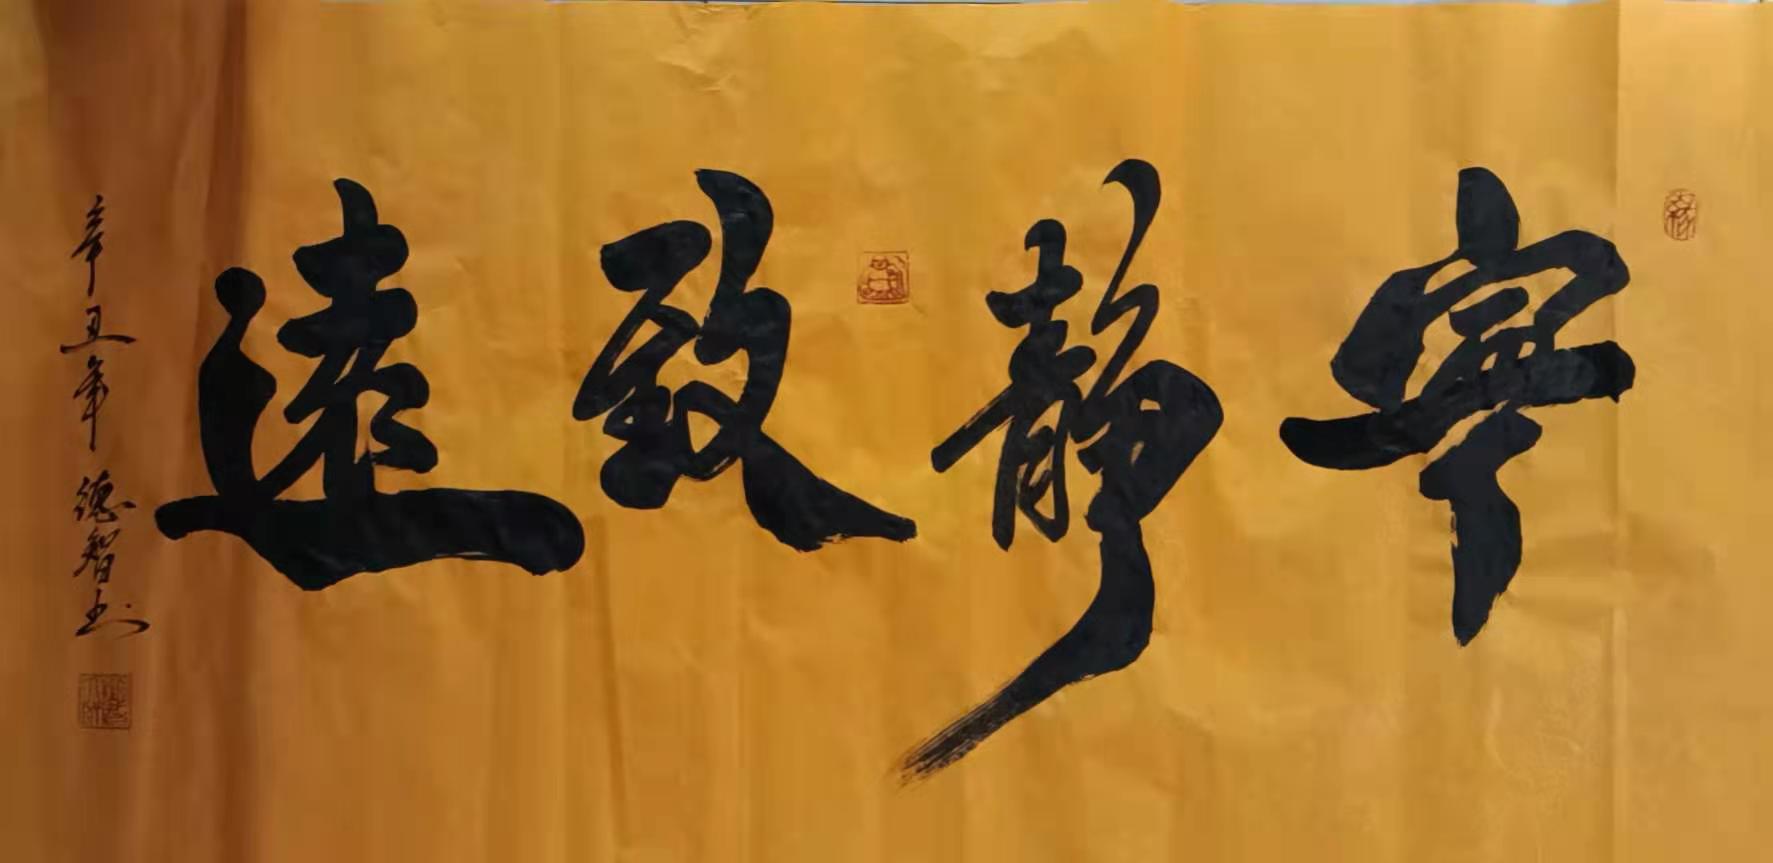 寧靜致遠
辛丑年德智书